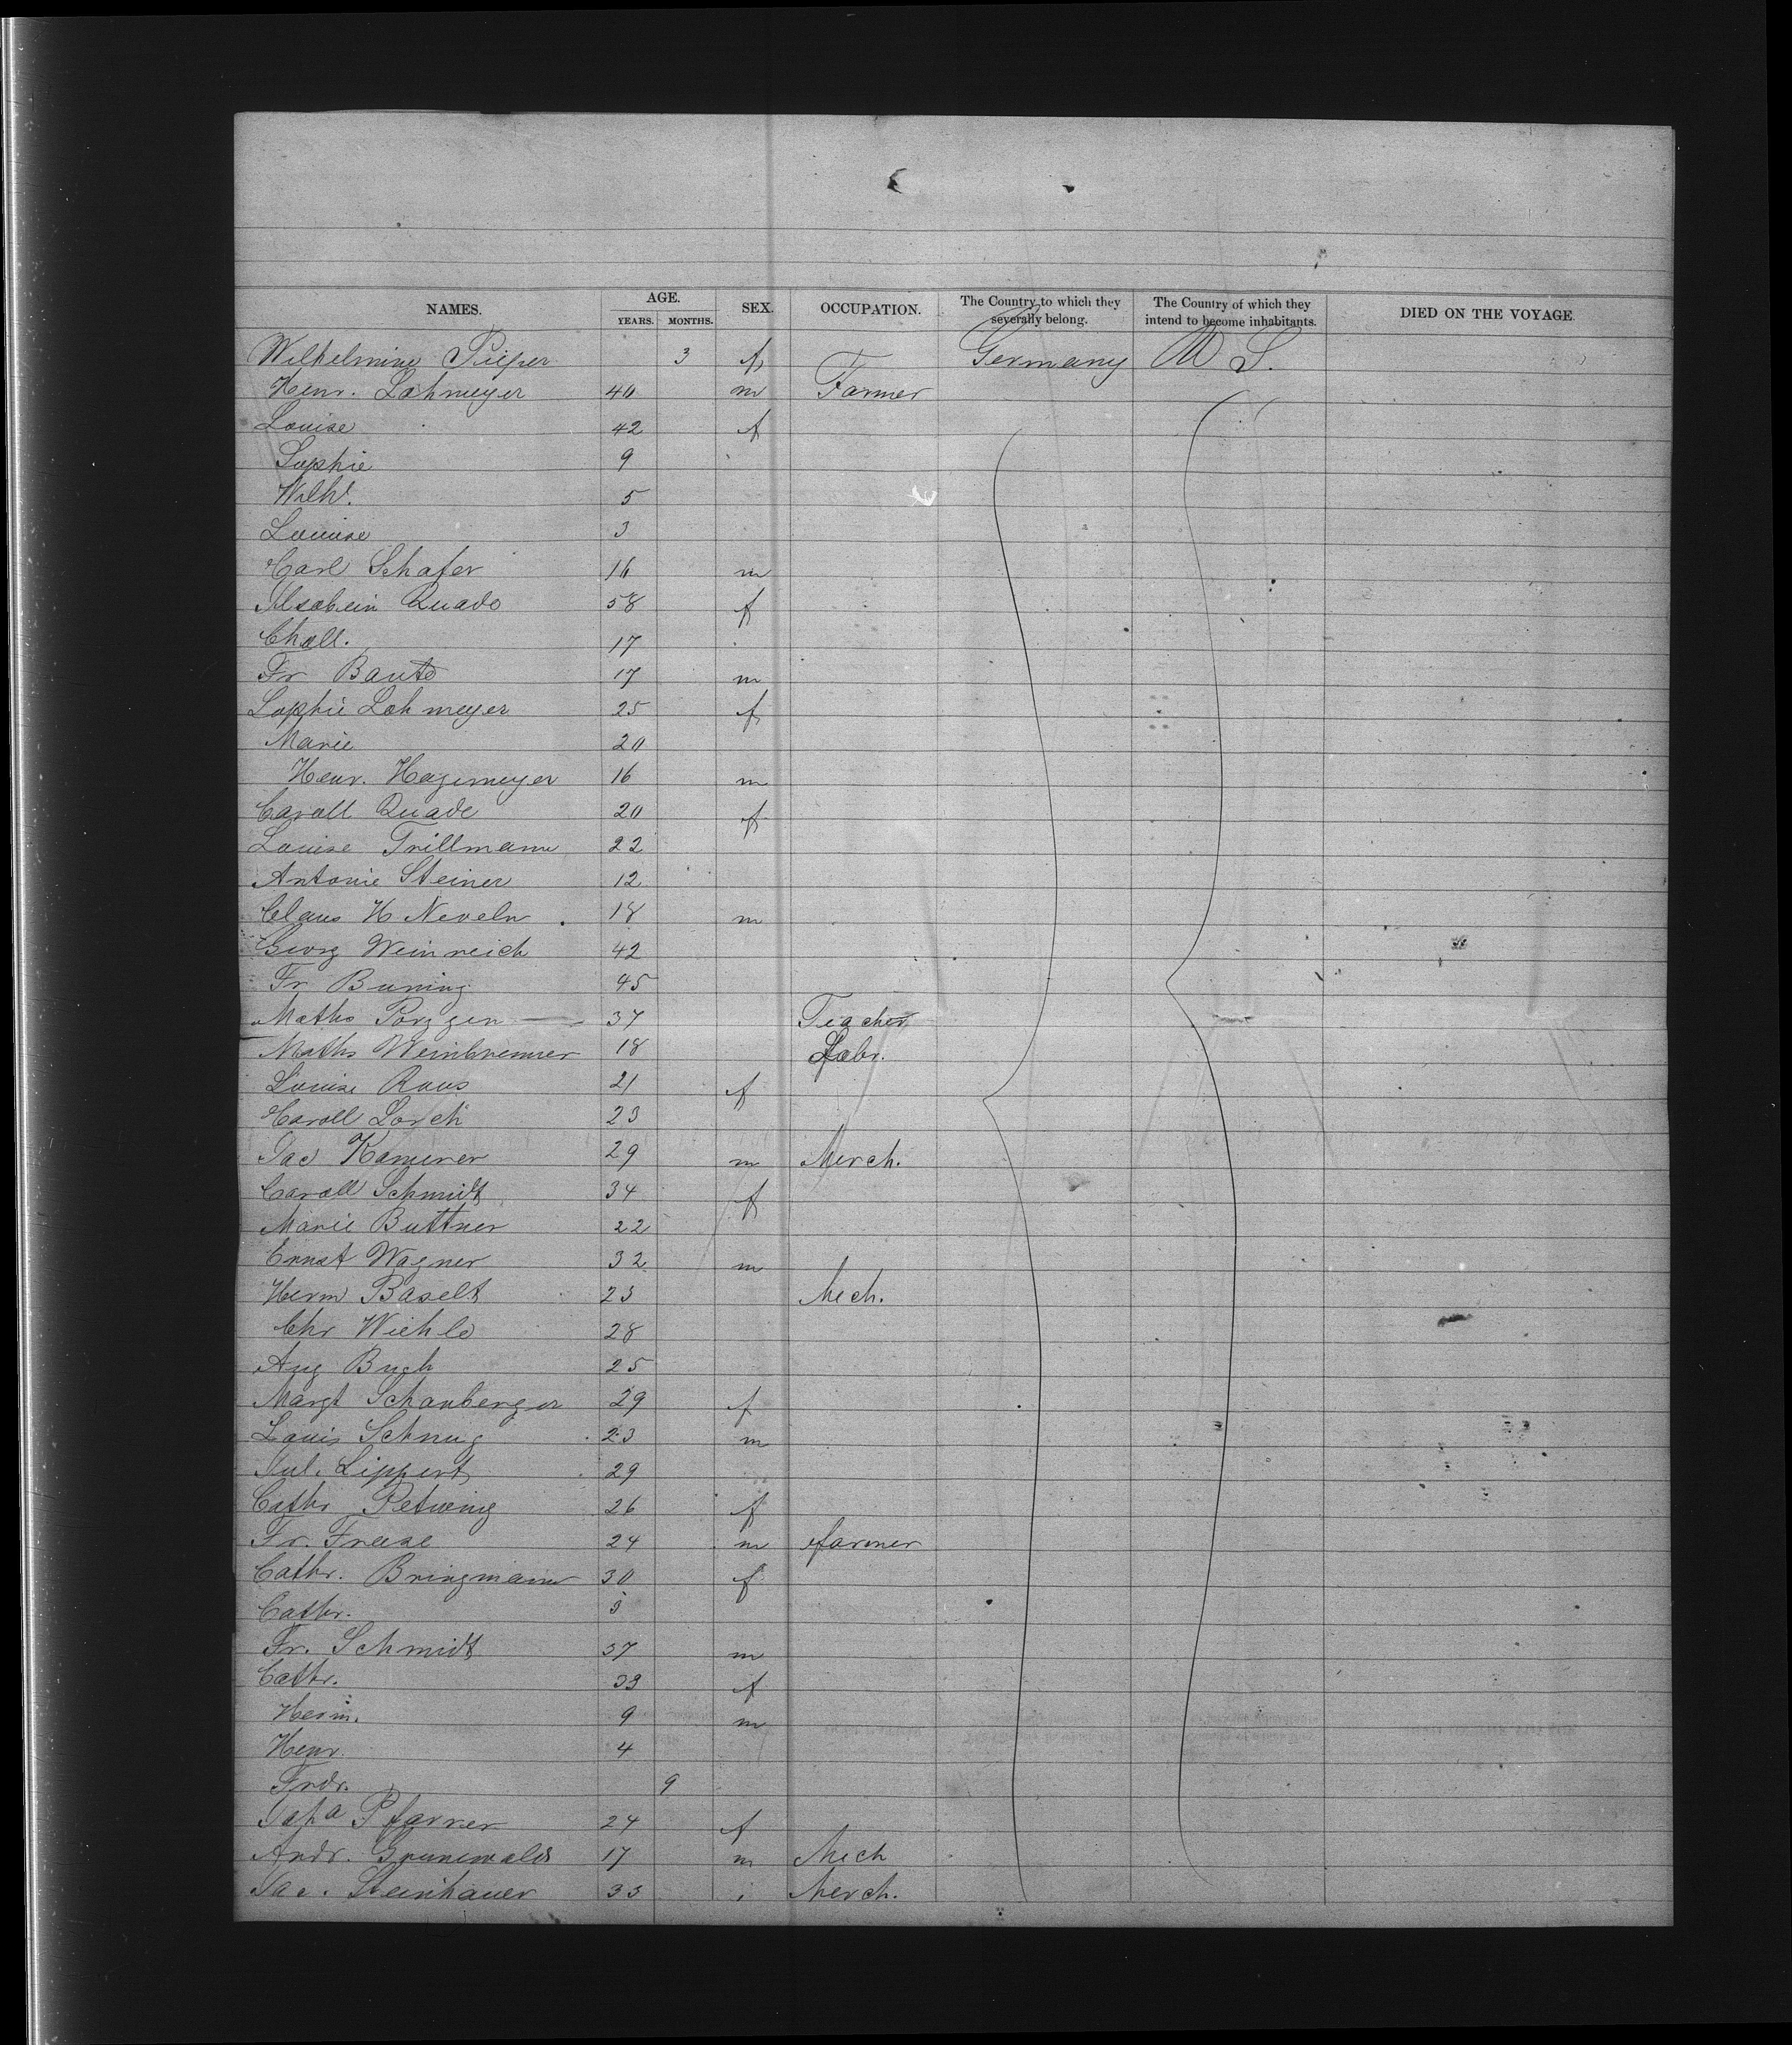 NAMES. AGE. YEARS. MONTHS. SEX. OCCUPATION. The Country to which they severally belong. The Country of which they intend to become inhabitants. DIED ON THE VOYAGE.
Wilhelmine Pieper 3 f Germany U S.
Henr. Lohmeyer 40 m Farmer
Louise 42 f
Sophie 9
Wilh. 5
Louise 3
Carl Schafer 16 m
Quade 58 f
17
Fr 17 m
Sophie Lohmeyer 25 f
Marie 20
Henr. Hagemeyer 16 m
Caroll Quade 20 f
Louise Trillmann 22
Antonie Steiner 12
Claus H Neveln 18 m
Georg Weinreich 42
Fr Buning 45
Maths 37 Teacher
Maths Weinbrenner 18 Labr.
Louise Roos 21 f
Caroll Lorch 23
Jac Kamerer 29 m Merch.
Caroll Schmidt 34 f
Marie Buttner 22
Ernst Wagner 32 m
Herm Baselt 23 Mech.
Chr Wiehle 28
Aug Buch 25
Margt Schanberger 29 f
Louis Schnug 23 m
Jul. Lippert 29
Cathr 26 f
Fr. Freese 24 m farmer
Cathr. Bringmann 30 f
Cathr. 3
Fr. Schmidt 37 m
Cathr. 33 f
Herm. 9 m
Henr 4
Frdr. 9
Pfarrer 24 f
Andr. Grunewald 17 m Mech
Jac. Steinhauer 33 Merch.